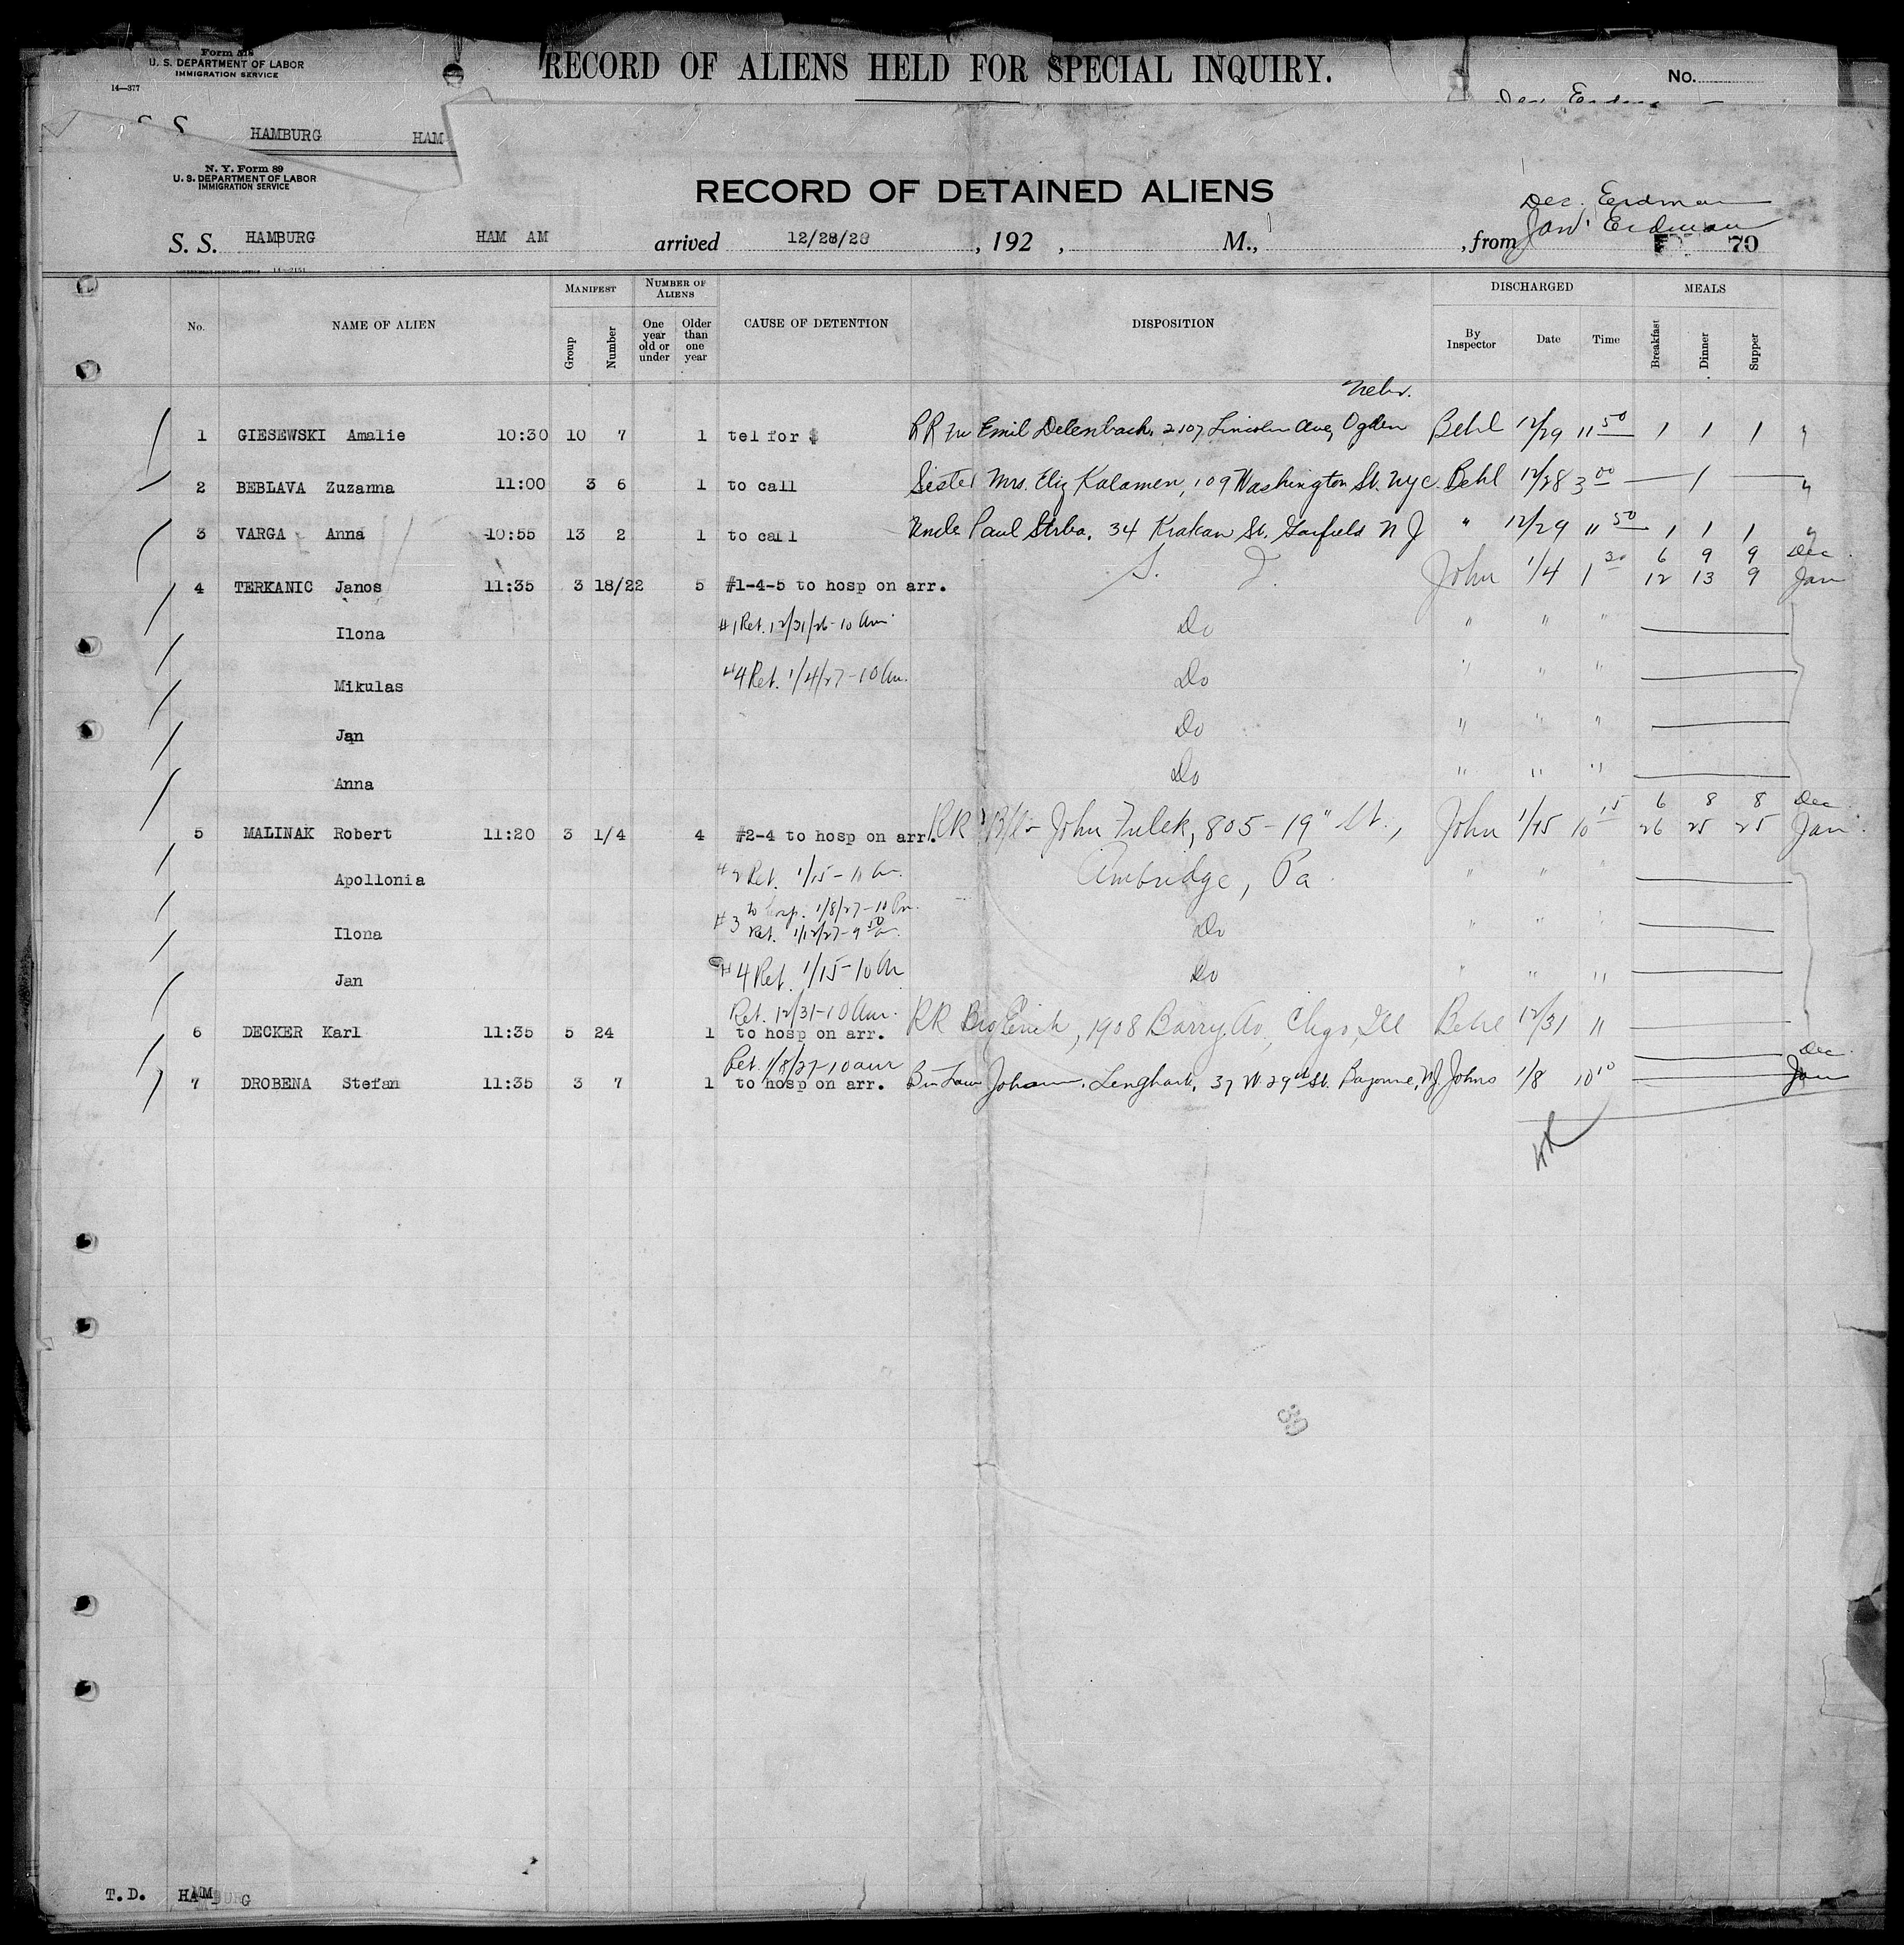 Form 518
U. S. DEPARTMENT OF LABOR
IMMIGRATION SERVICE
14—377
RECORD OF ALIENS HELD FOR SPECIAL INQUIRY.
No.
S. S. HAMBURG HAM
N. Y. Form 89
U. S. DEPARTMENT OF LABOR
IMMIGRATION SERVICE
RECORD OF DETAINED ALIENS
Dec. Erdman
Jan. Erdman
S. S. HAMBURG HAM AM arrived 12/28/26, 192 , M., , from 70
No. NAME OF ALIEN MANIFEST Group Number NUMBER OF ALIENS One year old or under Older than one year CAUSE OF DETENTION DISPOSITION DISCHARGED By Inspector Date Time MEALS Breakfast Dinner Supper
Nebr.
1 GIESEWSKI Amalie 10:30 10 7 1 tel for $ RR Emil Delenbach, 2107 Lincoln Ave, Ogden Behl 12/29 11 50 1 1 1 "
2 BEBLAVA Zuzanna 11:00 3 6 1 to call Sister Mrs. Eliz Kalamen, 109 Washington St. NYC. Behl 12/28 3 00 — 1 — "
3 VARGA Anna 10:55 13 2 1 to call Uncle Paul Strba, 34 Krakan St. Garfield N J " 12/29 11 50 1 1 1 "
6 9 9 Dec
4 TERKANIC Janos 11:35 3 18/22 5 #1-4-5 to hosp on arr. S. I. John 1/4 1 30 12 13 9 Jan
Ilona #1 Ret. 12/31/26-10 Am. Do " " "
Mikulas #4 Ret. 1/4/27-10 Am. Do " " "
Jan Do " " "
Anna Do " " "
6 8 8 Dec
5 MALINAK Robert 11:20 3 1/4 4 #2-4 to hosp on arr. RR B/L- John Fulek, 805-19" St., John 1/15 10 15 26 25 25 Jan
Apollonia #2 Ret. 1/15-11 Am. Ambridge, Pa " "
#3 to hosp. 1/8/27-10 Pm.
Ilona Ret. 1/12/27-9 50 Do " " "
Jan #4 Ret. 1/15-10 Am Do " " "
Ret. 12/31-10 Am.
6 DECKER Karl 11:35 5 24 1 to hosp on arr. RR Bro Erich, 1908 Barry Av., Chgo, Ill Behl 12/31 11
Ret. 1/8/27-10 am Dec.
7 DROBENA Stefan 11:35 3 7 1 to hosp on arr. Bro Law Johann Lenghart, 37 W 29th St. Bayonne, NJ Johns 1/8 10 10 Jan
T.D. HAMBURG